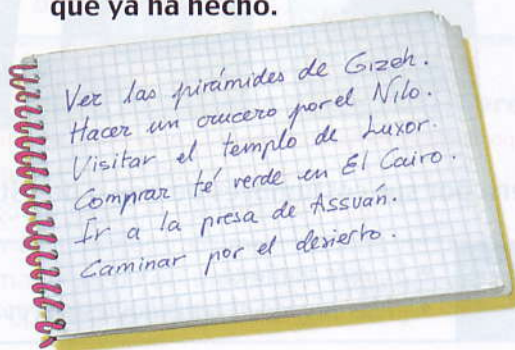 que ya ha hecho.
Ver las pirámides de Gizeh.
Hacer un crucero por el Nilo.
Visitar el templo de Luxor.
Comprar té verde en El Cairo.
Ir a la presa de Assuán.
Caminar por el desierto.